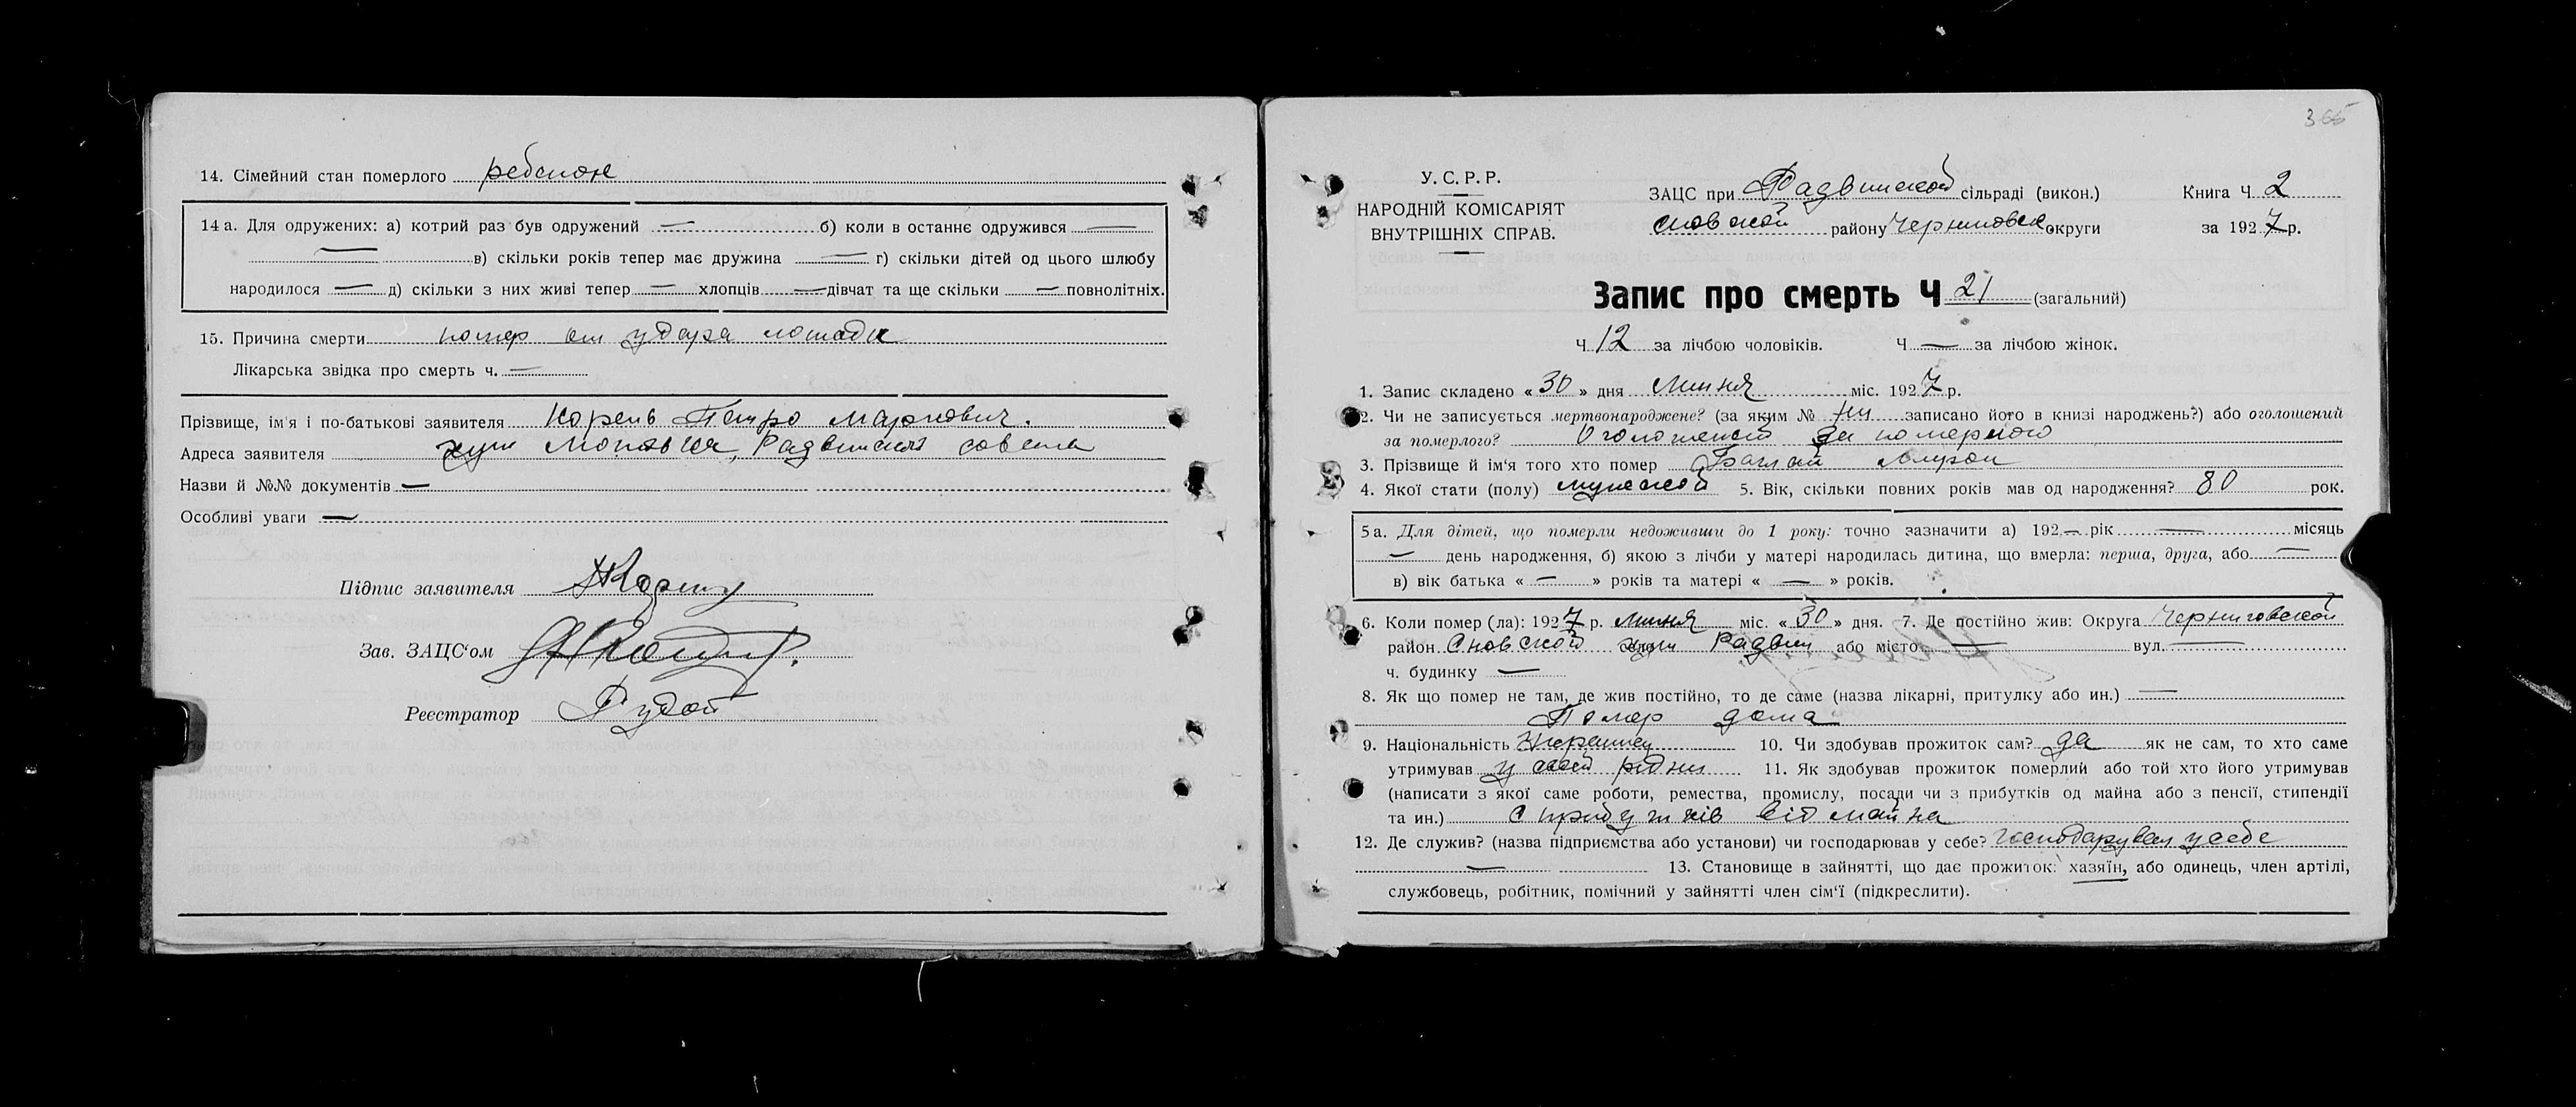 14. Сімейний стан померлого ребенок
14 а. Для одружених: а) котрий раз був одружений — б) коли в останнє одружився —
— в) скільки років тепер має дружина — г) скільки дітей од цього шлюбу
народилося — д) скільки з них живі тепер — хлопців — дівчат та ще скільки — повнолітніх.
15. Причина смерти помер от удара лошади
Лікарська звідка про смерть ч. —
Прізвище, ім'я і по-батькові заявителя Корень Петро Маркович.
Адреса заявителя хут совета
Назви й №№ документів —
Особливі уваги —
Підпис заявителя
Зав. ЗАЦС'ом
Реєстратор Рудой
365
У. С. Р. Р.
НАРОДНІЙ КОМІСАРІЯТ
ВНУТРІШНІХ СПРАВ.
ЗАЦС при сільраді (викон.)
Сновской району Черниговск округи
Книга Ч. 2
за 1927 р.
Запис про смерть Ч 21 (загальний)
Ч. 12 за лічбою чоловіків. Ч — за лічбою жінок.
1. Запис складено «30» дня міс. 1927 р.
2. Чи не записується мертвонароджене? (за яким № записано його в книзі народжень?) або оголошений
за померлого? за померлого
3. Прізвище й ім'я того хто помер
4. Якої стати (полу) мужской 5. Вік, скільки повних років мав од народження? 80 рок.
5 а. Для дітей, що померли недоживши до 1 року: точно зазначити а) 192 — рік — місяць
— день народження, б) якою з лічби у матері народилась дитина, що вмерла: перша, друга, або —
в) вік батька « — » років та матері « — » років.
6. Коли помер (ла): 1927 р. міс. «30» дня. 7. Де постійно жив: Округа Черниговской
район Сновской хут або місто — вул. —
ч. будинку —
8. Як що помер не там, де жив постійно, то де саме (назва лікарні, притулку або ин.) —
Помер дома
9. Національність Украинец 10. Чи здобував прожиток сам? да як не сам, то хто саме
утримував у своей рідни 11. Як здобував прожиток померлий або той хто його утримував
(написати з якої саме роботи, ремества, промислу, посади чи з прибутків од майна або з пенсії, стипендії
та ин.) с прибутків від майна
12. Де служив? (назва підприємства або установи) чи господарював у себе? господарував у себе
— 13. Становище в зайнятті, що дає прожиток: хазяїн, або одинець, член артілі,
службовець, робітник, помічний у зайнятті член сім'ї (підкреслити).